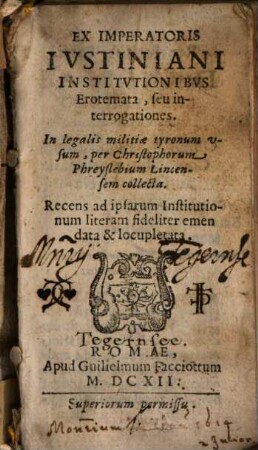 EX IMPERATORIS
IVSTINIANI
INSTITVTIONIBVS
Erotemata, seu in-
terrogationes.
In legalis militiæ tyronum v-
sum, per Christophorum
Phreyslebium Lincen-
sem collecta.
Recens ad ipsarum Institutio-
num literam fideliter emen
data & locupletata.
Tegernse
Tegernsee.
ROMAE,
Apud Guilielmum Facciottum
M. DCXII.
Superiorum permissu.